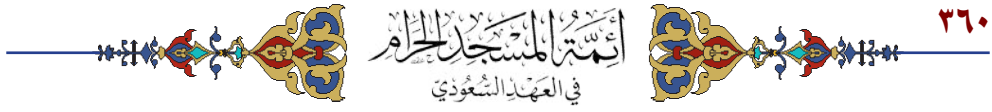 ٣٦٠
أَئِمَّةُ المَسْجِدِ الحَرَامِ
فِي العَهْدِ السُّعُودِيِّ